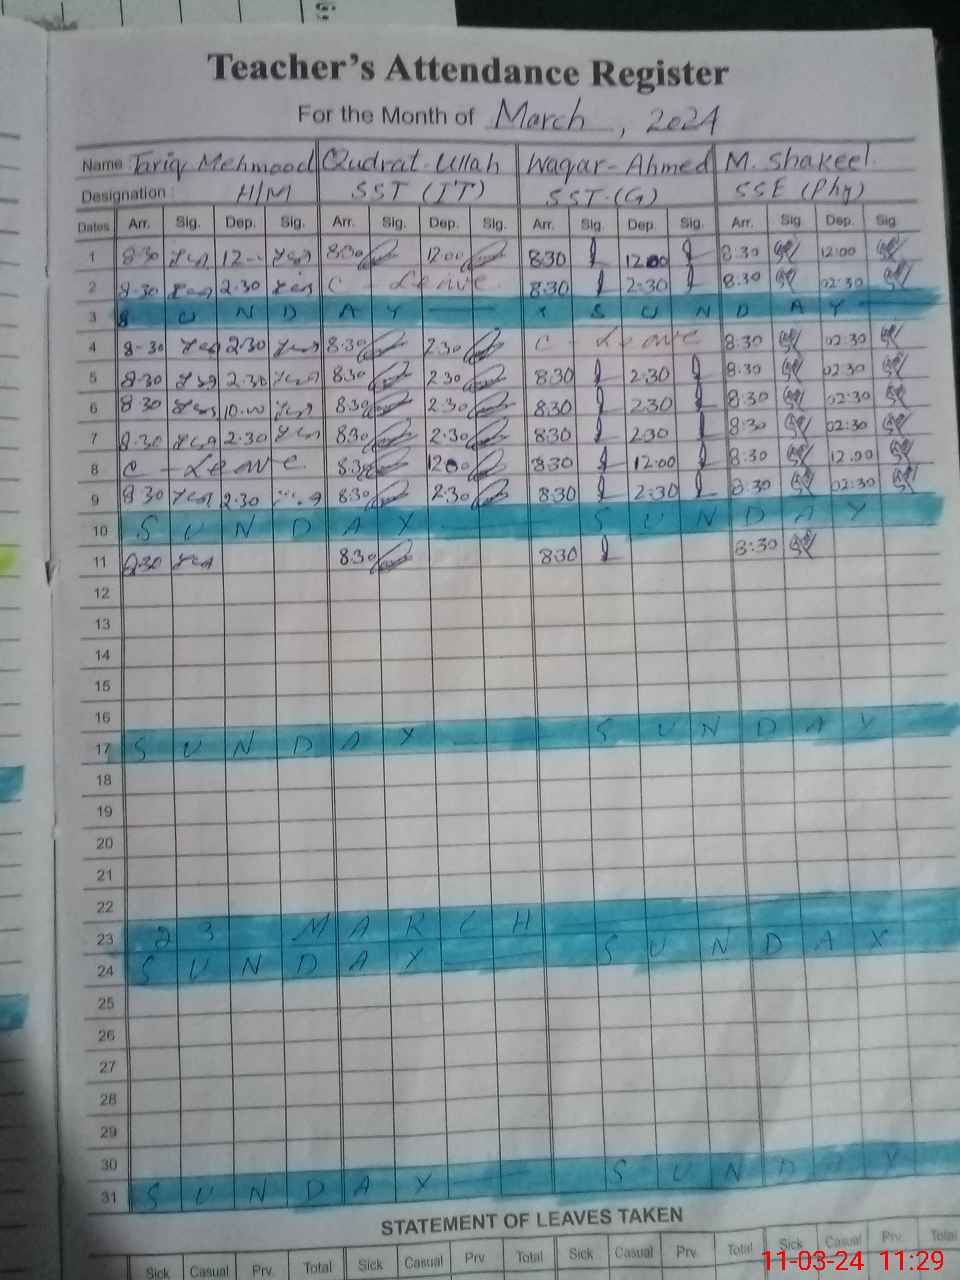 Teacher's Attendance Register
For the Month of March, 2024
Name Tariq Mehmood Qudrat-Ullah Waqar-Ahmed M. Shakeel.
Designation: H/M SST (IT) SST-(G) SSE (Phy)
Dates Arr. Sig. Dep. Sig. Arr. Sig. Dep. Sig. Arr. Sig. Dep. Sig. Arr. Sig. Dep. Sig.
1 8:30 12-- 8:30 12:00 8:30 12:00 8:30 12:00
2 8.30 2.30 C - Leave 8:30 2:30 8:30 02:30
3 S U N D A Y S U N D A Y
4 8-30 2.30 8:30 2:30 C - Leave 8:30 02:30
5 8.30 2.30 8:30 2:30 8:30 2:30 8:30 02:30
6 8.30 10.00 8:30 2:30 8:30 2:30 8:30 02:30
7 8.30 2.30 8:30 2:30 8:30 2:30 8:30 02:30
8 C - Leave 8:30 12:00 8:30 12:00 8:30 12:00
9 8.30 2.30 8:30 2:30 8:30 2:30 8:30 02:30
10 S U N D A Y S U N D A Y
11 8.30 8:30 8:30 8:30
12
13
14
15
16
17 S U N D A Y S U N D A Y
18
19
20
21
22
23 23 M A R C H
24 S U N D A Y S U N D A Y
25
26
27
28
29
30
31 S U N D A Y S U N D A Y
STATEMENT OF LEAVES TAKEN
Sick Casual Prv. Total Sick Casual Prv Total Sick Casual Prv. Total Sick Casual Prv. Total
11-03-24 11:29